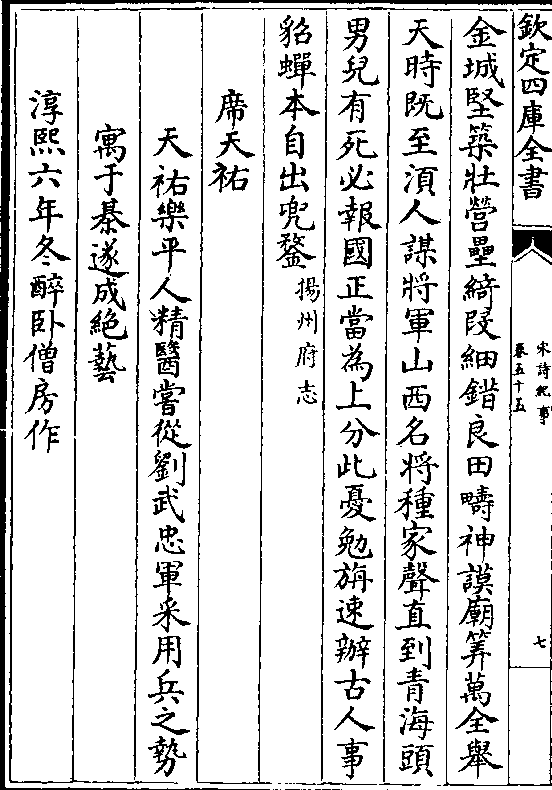 欽定四庫全書
宋詩紀事
卷五十五
七
金城堅築壯營壘綺叚細錯良田疇神謨廟筭萬全舉
天時既至湏人謀將軍山西名將種家聲直到青海頭
男兒有死必報國正當為上分此憂勉旃速辦古人事
貂蟬本自出兜鍪揚州府志
席天祐
天祐樂平人精醫嘗從劉武忠軍采用兵之勢
寓于棊遂成絶藝
淳熙六年冬醉卧僧房作